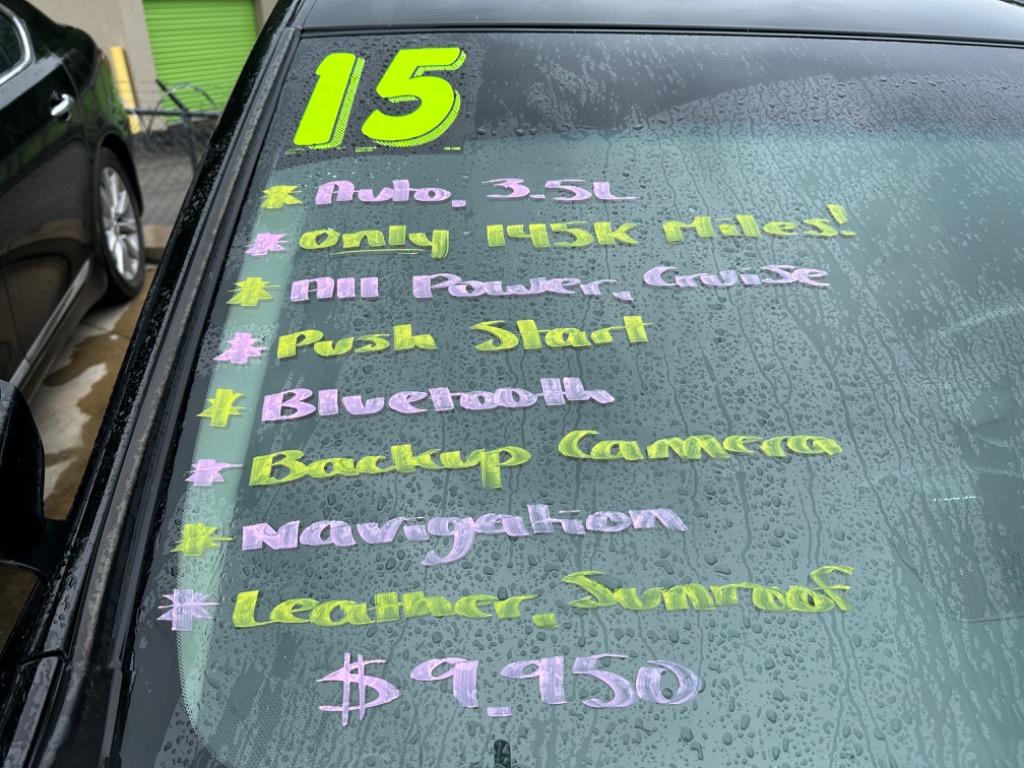 15
* Auto, 3.5L
* Only 145K Miles!
* All Power, Cruise
* Push Start
* Bluetooth
* Backup Camera
* Navigation
* Leather, Sunroof
$9,950